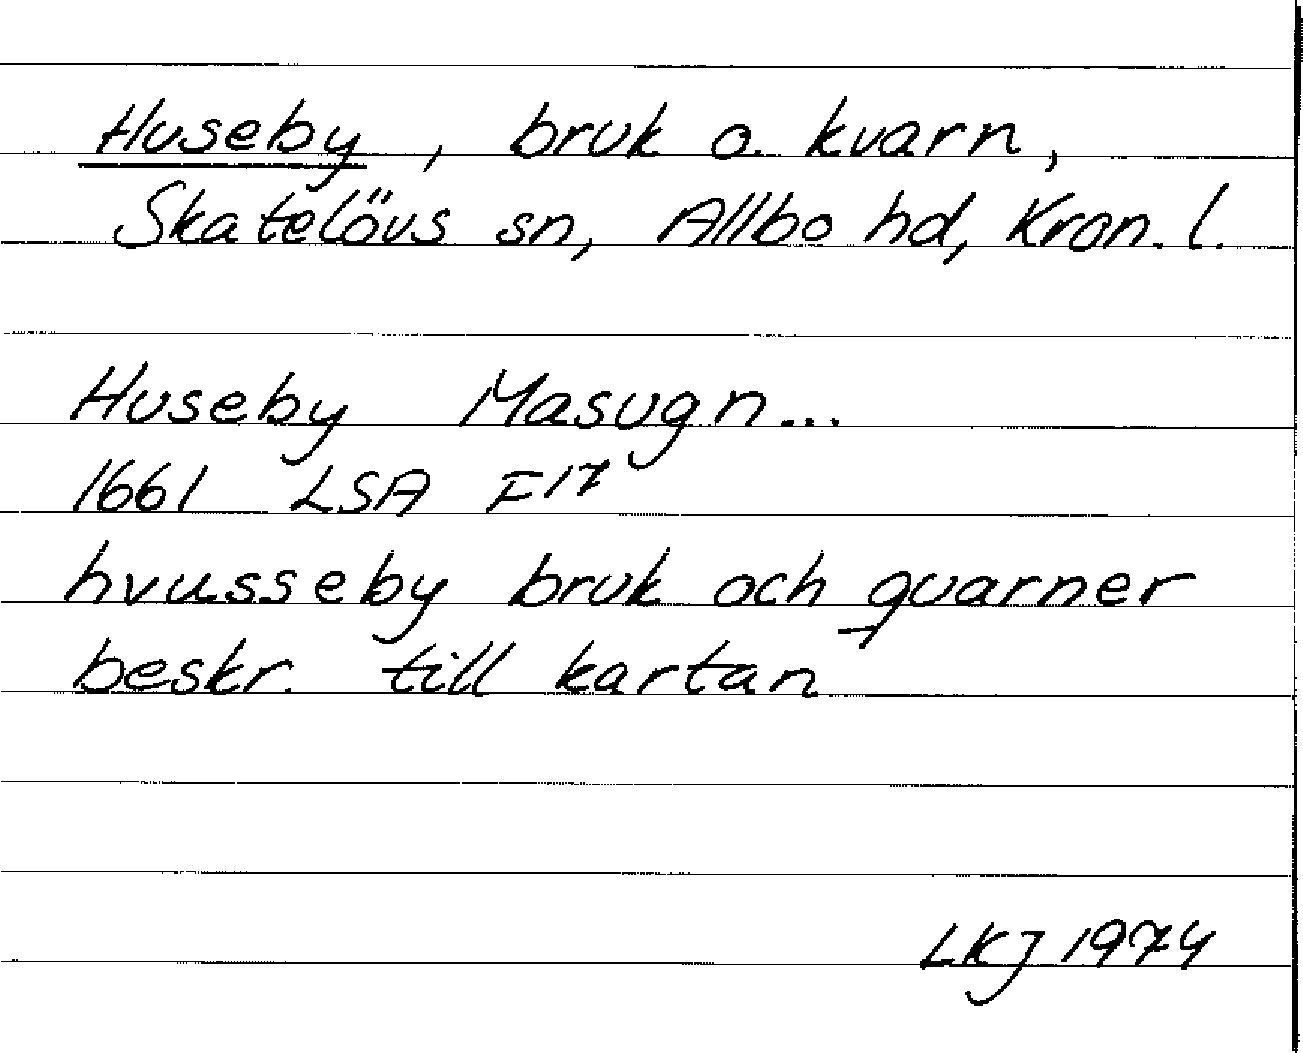 Huseby, bruk o. kvarn,
Skatelövs sn, Allbo hd, Kron. l.
Huseby Masugn...
1661 LSA F17
hvusseby bruk och quarner
beskr. till kartan
LKJ 1974